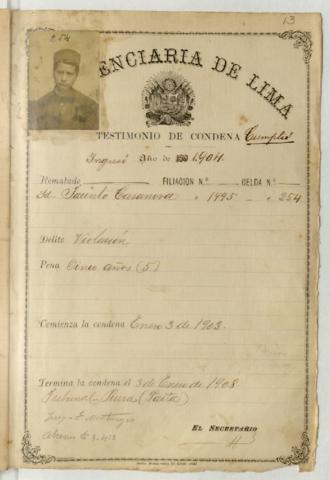 13
254
PENITENCIARIA DE LIMA
TESTIMONIO DE CONDENA Cumplió
Ingresó Año de 190 1904
Rematado FILIACION N.º CELDA N.º
Id. Jacinto Casanova " 1495 " 254
Delito Violación
Pena Cinco años (5)
Comienza la condena Enero 3 de 1903.
Termina la condena el 3 de Enero de 1908
Tribunal Piura (Paita)
EL SECRETARIO